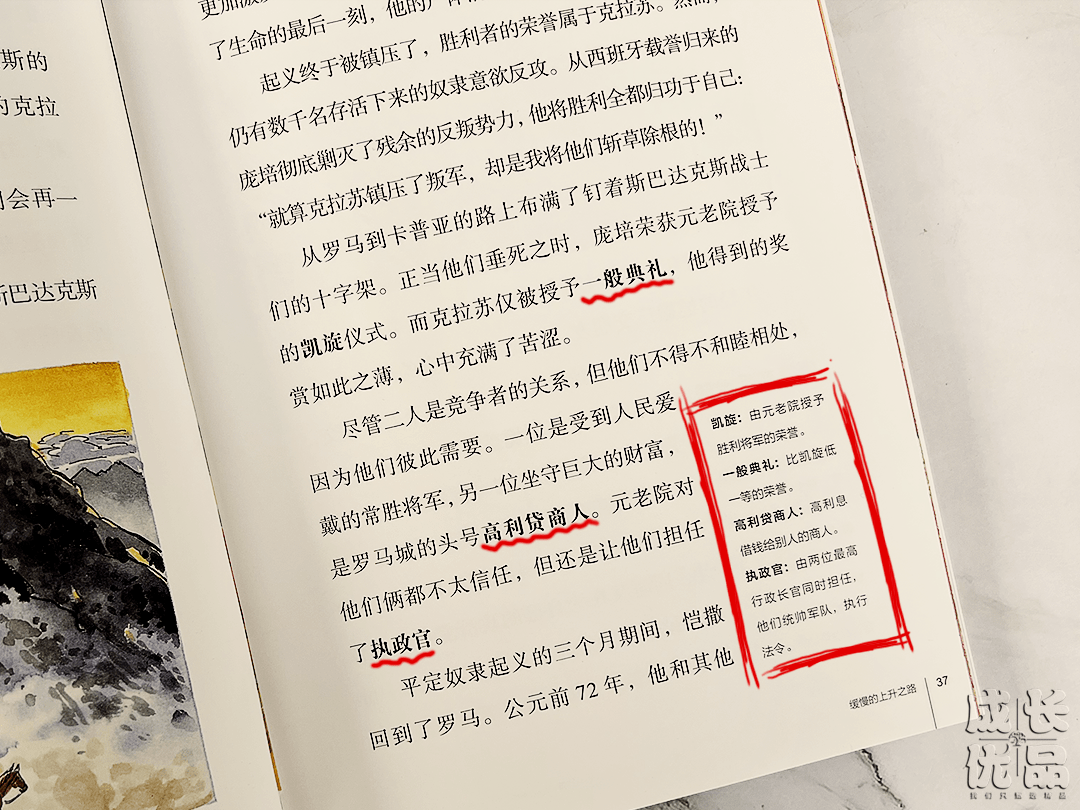 斯的
的克拉
会再一
斯巴达克斯
了生命的最后一刻，他的
起义终于被镇压了，胜利者的荣誉属于克拉苏。然而，
仍有数千名存活下来的奴隶意欲反攻。从西班牙载誉归来的
庞培彻底剿灭了残余的反叛势力，他将胜利全都归功于自己：
“就算克拉苏镇压了叛军，却是我将他们斩草除根的！”
从罗马到卡普亚的路上布满了钉着斯巴达克斯战士
们的十字架。正当他们垂死之时，庞培荣获元老院授予
的凯旋仪式。而克拉苏仅被授予一般典礼，他得到的奖
赏如此之薄，心中充满了苦涩。
尽管二人是竞争者的关系，但他们不得不和睦相处，
因为他们彼此需要。一位是受到人民爱
戴的常胜将军，另一位坐守巨大的财富，
是罗马城的头号高利贷商人。元老院对
他们俩都不太信任，但还是让他们担任
了执政官。
平定奴隶起义的三个月期间，恺撒
回到了罗马。公元前 72 年，他和其他
凯旋：由元老院授予
胜利将军的荣誉。
一般典礼：比凯旋低
一等的荣誉。
高利贷商人：高利息
借钱给别人的商人。
执政官：由两位最高
行政长官同时担任，
他们统帅军队，执行
法令。
缓慢的上升之路 37
成长
优品
我们只做精品